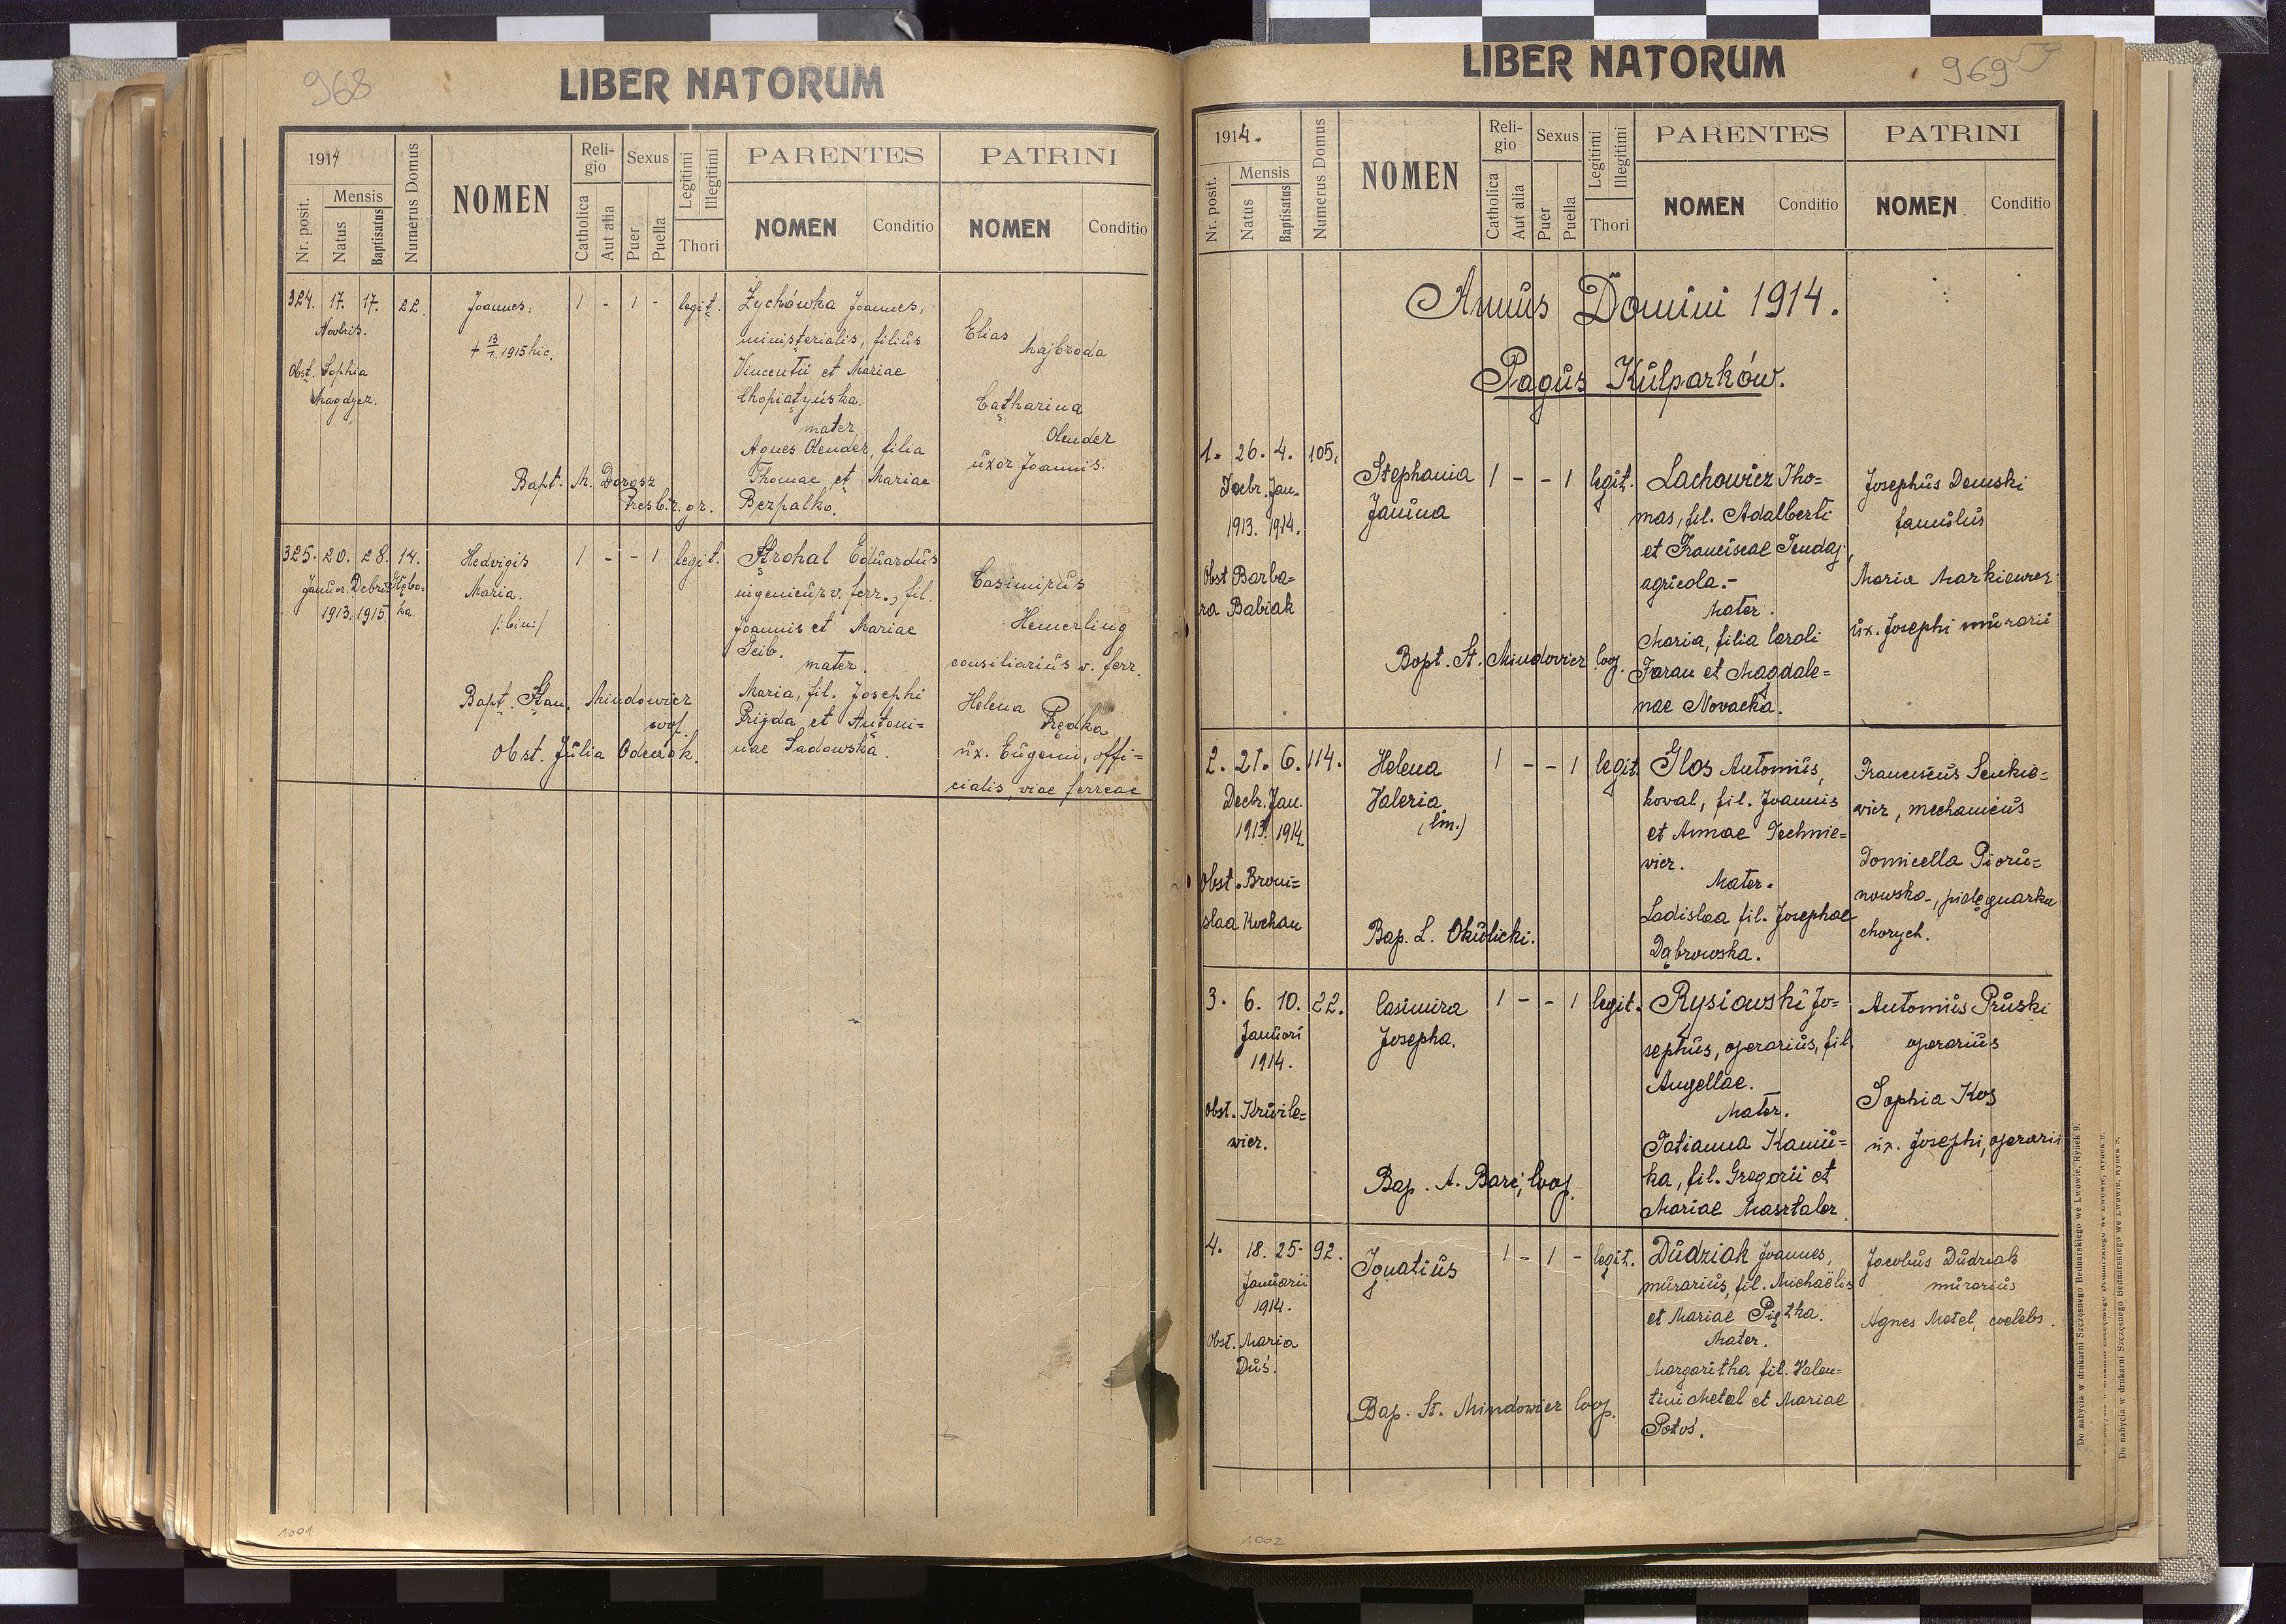 968
LIBER NATORUM
1914
Nr. posit.
Mensis
Natus
Baptisatus
Numerus Domus
NOMEN
Religio
Catholica
Aut alia
Sexus
Puer
Puella
Legitimi
Illegitimi
Thori
PARENTES
NOMEN
Conditio
PATRINI
NOMEN
Conditio
324. 17. 17. 22.
Novbris.
Obst. Sophia
Joannes.
+ 13/1. 1915 hic.
1 - 1 - legit.
Żychówka Joannes,
ministerialis, filius
Vincentii et Mariae
mater
Agnes Olender, filia
Thomae et Mariae
Bezpalko.
Elias
Majbroda
Catharina
Olender
uxor Joannis.
Bapt. M. Dorosz
Presb. r. gr.
325. 20. 28. 14.
Januar. Debris
1913. 1915.
Hedvigis
Maria.
/:bin:/
1 - - 1 legit.
Strohal Eduardus
v. ferr., fil.
Joannis et Mariae
mater.
Maria, fil. Josephi
Prijda et Antoni-
nae Sadowska.
Casimirus
Hemerling
consiliarius v. ferr.
Helena
ux. Eugenii, offi-
cialis viae ferreae
Bapt. Stan. Mindowicz
Obst. Julia
1001
969
LIBER NATORUM
1914.
Nr. posit.
Mensis
Natus
Baptisatus
Numerus Domus
NOMEN
Religio
Catholica
Aut alia
Sexus
Puer
Puella
Legitimi
Illegitimi
Thori
PARENTES
NOMEN
Conditio
PATRINI
NOMEN
Conditio
Annus Domini 1914.
Pagus Kulparków.
1. 26. 4. 105.
Decbr. Jan.
1913. 1914.
Obst. Barba=
ra Babiak
Stephania
Janina
1 - - 1 legit.
Lachowicz Tho=
mas, fil. Adalberti
et Franciscae
agricola.-
Mater.
Maria, filia Caroli
Faran et Magdale=
nae Novacka.
Josephus Demski
famulus
Maria Markiewicz
ux. Josephi murarii
Bapt. St. Mindowicz Coop.
2. 21. 6. 114.
Decbr. Jan.
1913. 1914.
Obst. Broni=
slaa Kochan
Helena
Valeria
(bin.)
1 - - 1 legit.
Glos Antonius,
koval, fil. Joannis
et Annae Technie=
wicz.
Mater.
Ladislaa fil. Josephae
Dąbrowska.
Franciscus Senkie=
wicz, mechanicus
Domicella Pioru=
nowska, pielęgniarka
chorych.
Bap. L. Okulicki.
3. 6. 10. 22.
Januari
1914.
Obst. Kruile=
wicz.
Casimira
Josepha.
1 - - 1 legit.
Rysiowski Jo=
sephus, operarius, fil.
Angellae.
Mater.
Tatianna Kamiń=
ka, fil. Gregorii et
Mariae Masztaler.
Antonius Pruski
operarius
Sophia Kos
ux. Josephi, operarii
Bap. A. Coop.
4. 18. 25. 92.
Januarii
1914.
Obst. Maria
Duś.
Ignatius
1 - 1 - legit.
Dudziak Joannes,
murarius, fil. Michaëlis
et Mariae Piętka.
Mater.
Margaritha fil. Valen=
tini Metel et Mariae
Jacobus Dudziak
murarius
Agnes Metel, coelebs.
Bap. St. Mindowicz Coop.
Do nabycia w drukarni Szczęsnego Bednarskiego we Lwowie, Rynek 9.
Do nabycia w drukarni Szczęsnego Bednarskiego we Lwowie, Rynek 9.
1002